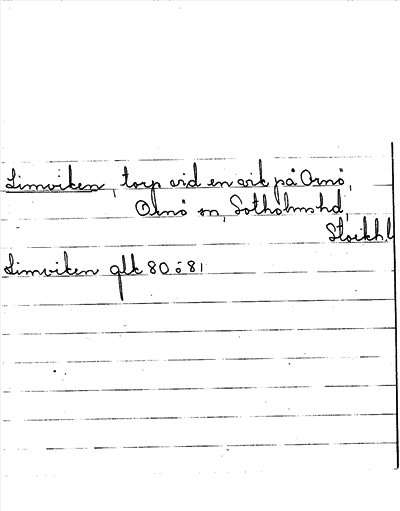 Limviken, torp vid en vik på Ornö,
Ornö sn, Sotholms hd,
Stockh.l
Limviken glk 80 o 81